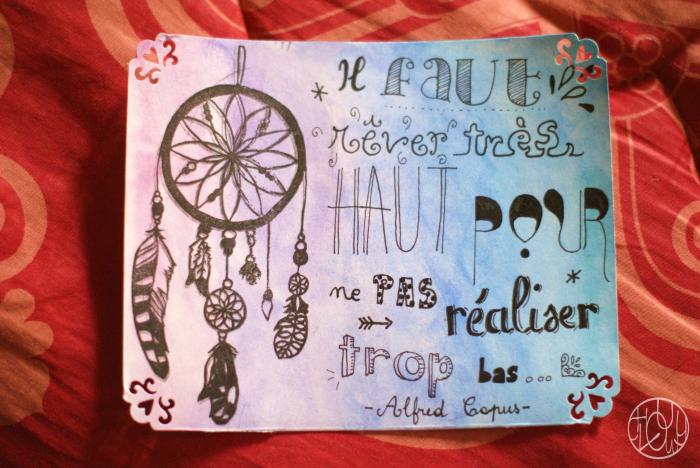 Il faut
rêver très
HAUT POUR
ne PAS réaliser
trop bas...
-Alfred Capus-